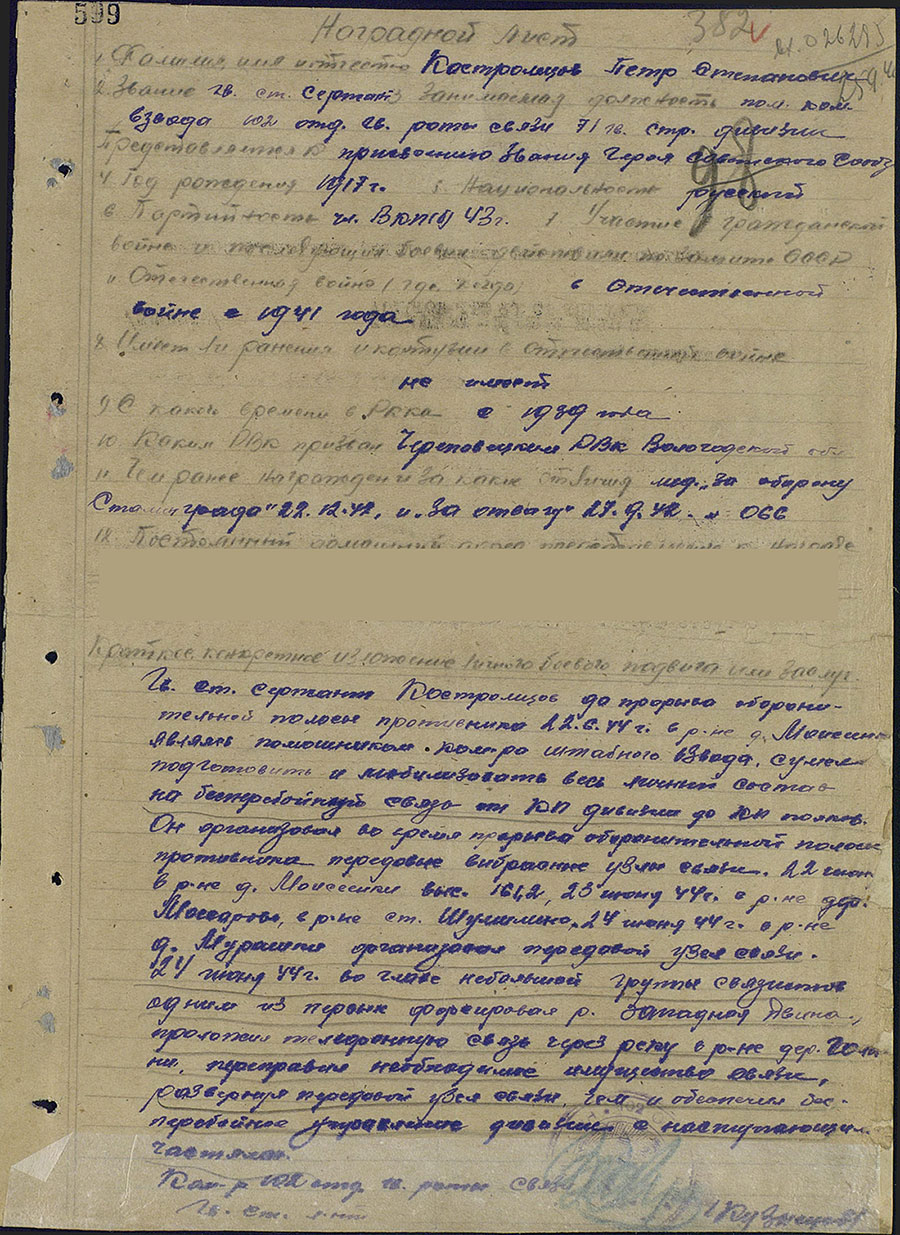 599
Наградной лист
382
1. Фамилия, имя и отчество Костромицов Петр Степанович
2. Звание гв. ст. сержант 3 Занимаемая должность пом. ком.
взвода 102 отд. гв. роты связи 71 гв. стр. дивизии
98
Представляется к присвоению звания Героя Советского Союза
4. Год рождения 1917 г. 5. Национальность русский
6 Партийность чл. ВКП(б) 43 г. 7. Участие в гражданской
войне и последующих боевых действиях по защите СССР
и Отечественная война (где, когда) в Отечественной
войне с 1941 года
8. Имеет ли ранения и контузии в отечественной войне
не имеет
9. С какого времени в РККА с 1939 года
10. Каким РВК призван Череповецким РВК Вологодской обл
11 Чем ранее награжден и за какие отличия мед. „За оборону
Сталинграда" 22.12.42, и „За отвагу" 066
12. Постоянный домашний адрес к награде
Краткое, конкретное изложение личного боевого подвига или заслуг
Гв. ст. сержант Костромицов до прорыва оборони-
тельной полосы противника 22.6.44 г. в р-не д.
являясь помошником ком-ра штабного взвода, сумел
подготовить и мобилизовать весь личный состав
на бесперебойную связь от КП дивизии до КП полков.
Он организовал во время прорыва оборонительной полосы
противника передовые узлы связи. 22 июня
в р-не д. выс. 161,2, 23 июня 44 г. в р-не
в р-не ст. Шумилино, 24 июня 44 г. в р-не
д. организовал передовой узел связи.
24 июня 44 г. во главе небольшой группы связистов
одним из первых форсировал р. Западная Двина,
проложил телефонную связь через реку в р-не дер.
переправил необходимое имущество связи,
развернул передовой узел связи, чем и обеспечил бес-
перебойное управление дивизии с наступающими
частями.
Ком-р 102 отд. гв. роты связи
Гв. ст. л-нт Кузнецов